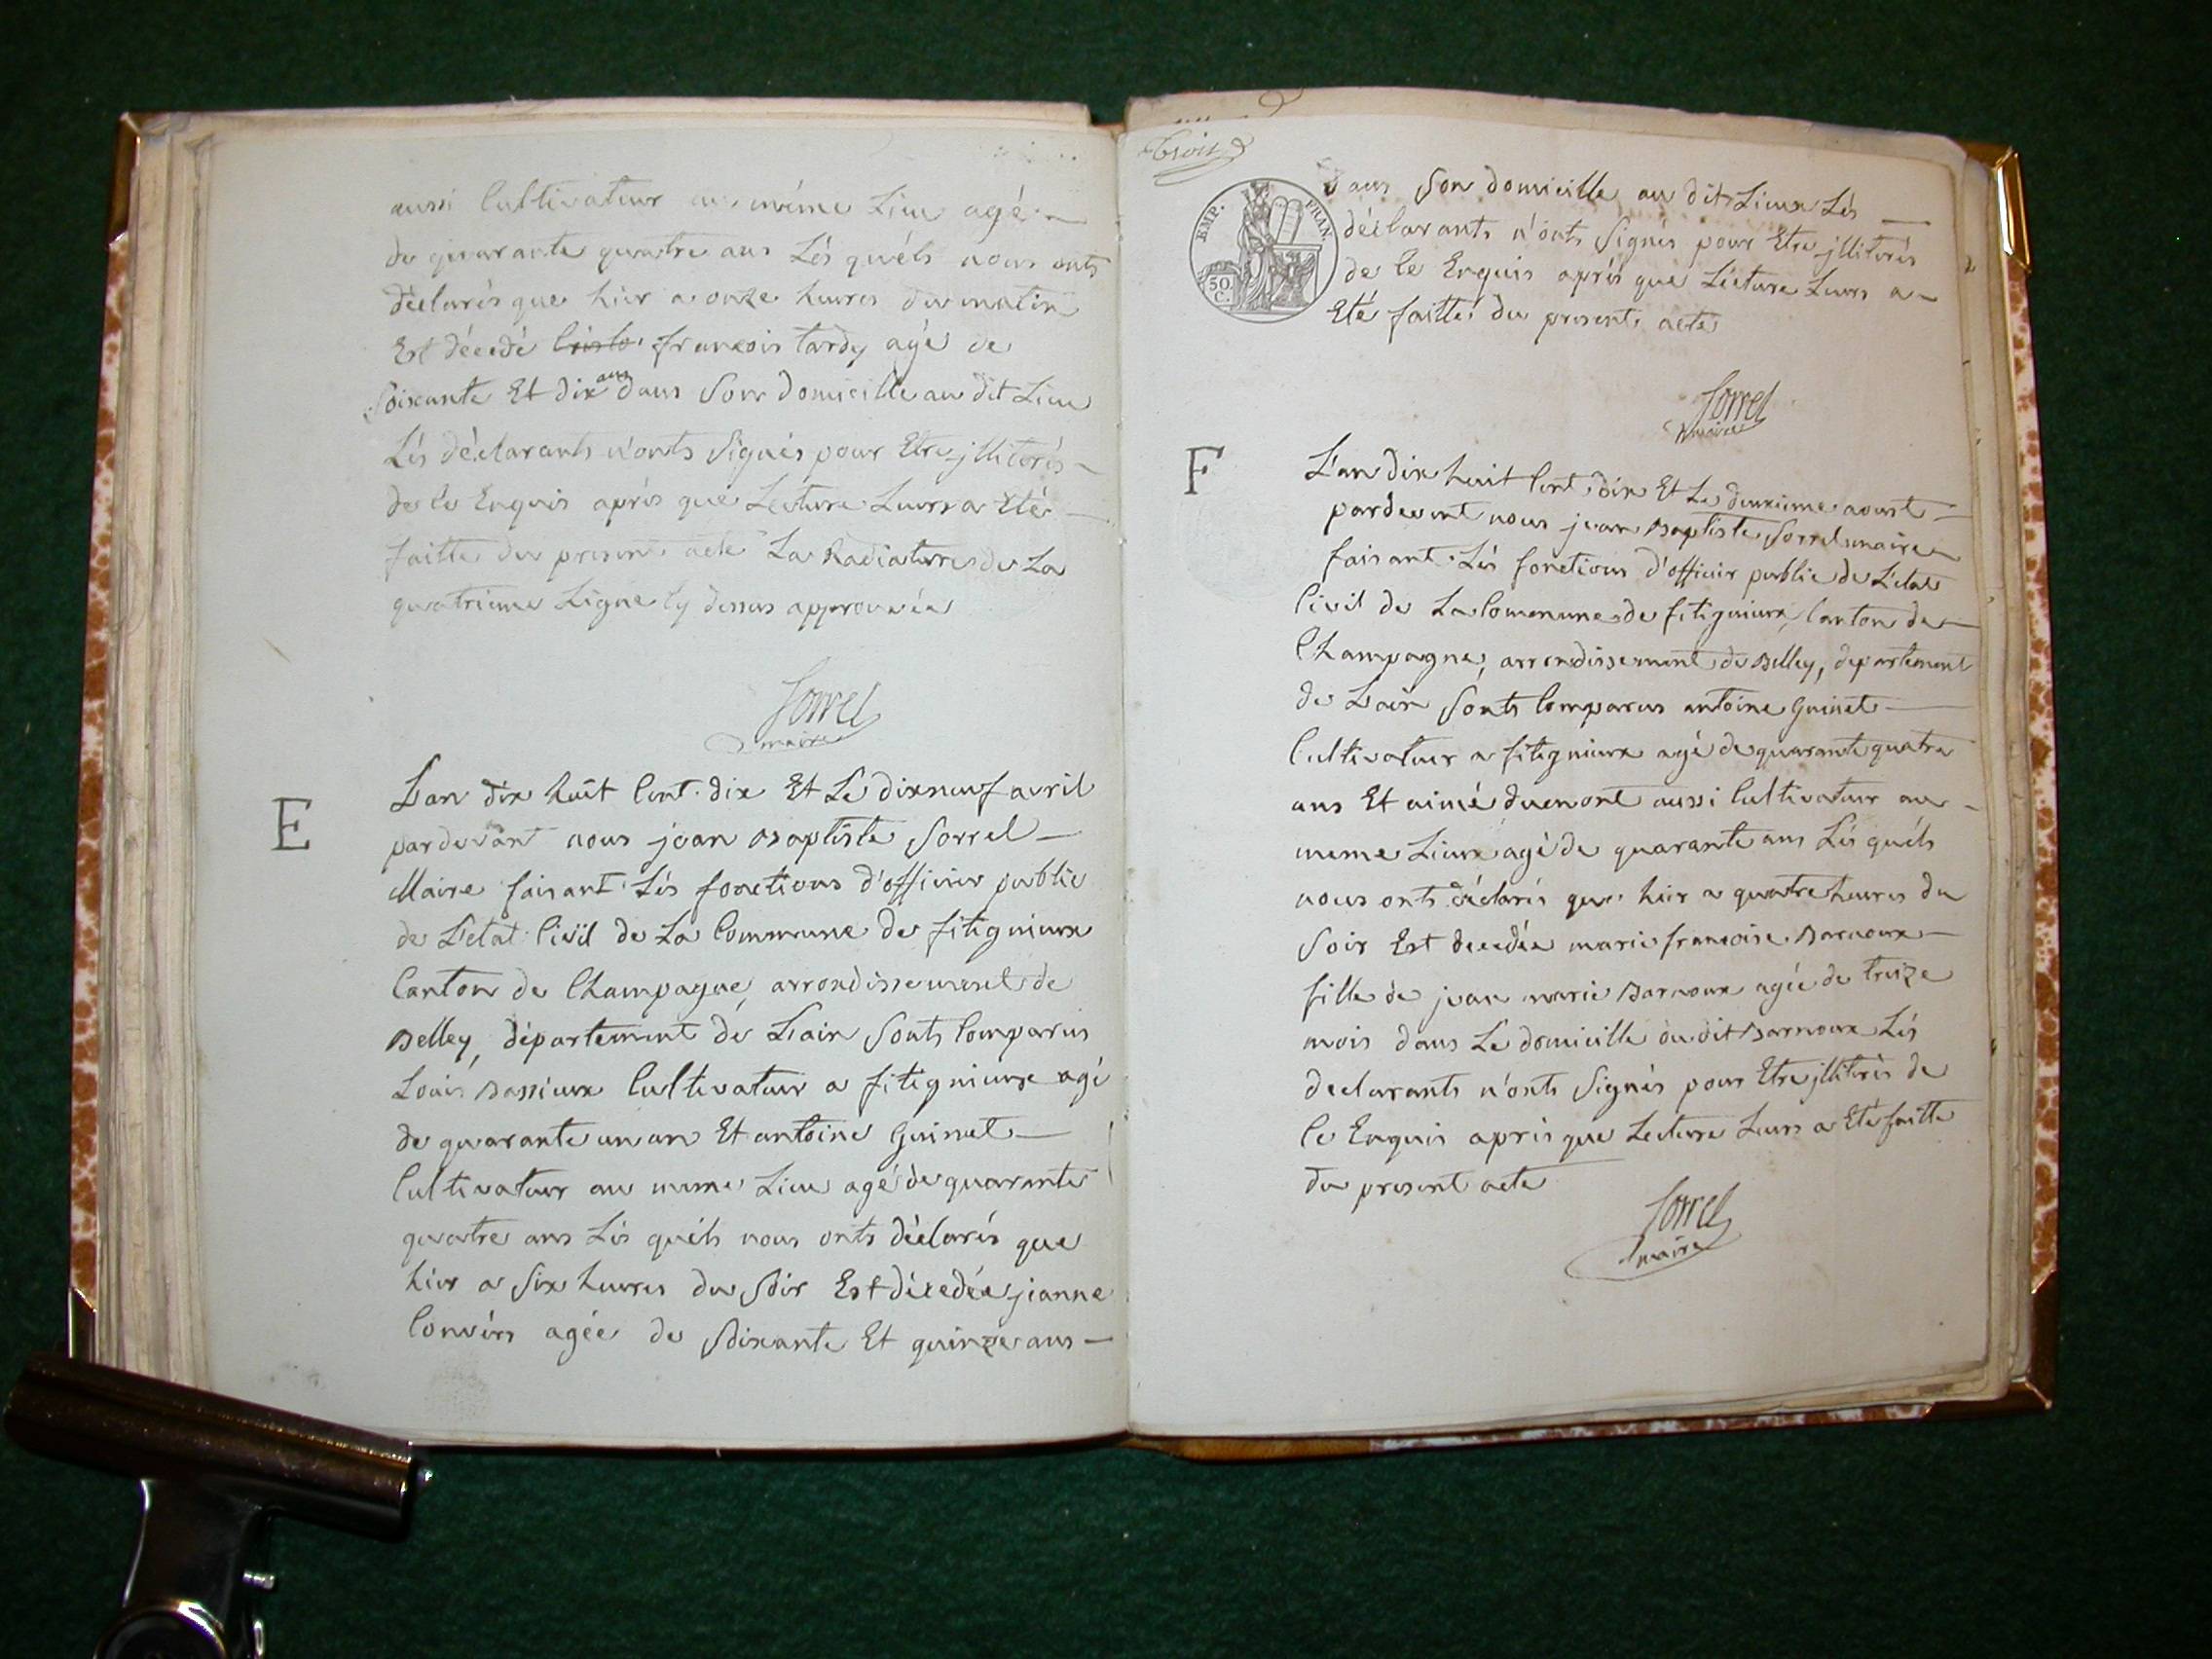 aussi Cultivateur au même Lieu agé
de quarante quatre ans Lés quéls nous onts
déclarés que hier a onze heures du matin
Est décedé francois tardy agé de
Soixante Et dix ans dans Son domicille au dit Lieu
Lés déclarants n'onts Signés pour Etre jllitérés
de Ce Enquis aprés que Lecture Leurs a Eté
faitte du present acte La Radiature de La
quatrieme Ligne Cy dessus approuvée
Sorrel
maire
E
L'an dix huit Cent dix Et Le dixneuf avril
pardevant nous jean Baptiste Sorrel
Maire faisant Lés fonctions d'officier public
de L'etat Civil de La Commune de fitignieux
Canton de Champagne, arrondissement de
Belley, département de L'ain Sonts Comparus
Louis Bassieux Cultivateur a fitignieux agé
de quarante un an Et antoine Guinet
Cultivateur au meme Lieu agé de quarante
quatre ans Lés quéls nous onts déclarés que
hier a Six heures du Soir Est décedée jeanne
Convérs agée de Soixante Et quinze ans
Trois
EMP. FRAN.
50 C.
dans Son domicille au dit Lieux Lés
déclarants n'onts Signés pour Etre jllitérés
de Ce Enquis aprés que Lécture Leurs a
Eté faitte du present acte
Sorrel
maire
F
L'an dix huit Cent dix Et Le deuxieme aoust
pardevant nous jean Baptiste Sorrel maire
faisant Lés fonctions d'officier public de L'etat
Civil de La Commune de fitignieux, Canton de
Champagne, arrondissement de Belley, departement
de L'ain Sonts Comparus antoine Guinet
Cultivateur a fitignieux agé de quarante quatre
ans Et aimé dumont aussi Cultivateur au
meme Lieux agé de quarante ans Lés quéls
nous onts déclarés que hier a quatre heures du
Soir Est decedée marie francoise Barnoux
fille de jean marie Barnoux agée de treize
mois dans Le domicille du dit Barnoux Lés
declarants n'onts Signés pour Etre jllitérés de
Ce Enquis aprés que Lecture Leurs a Eté faitte
du present acte
Sorrel
maire